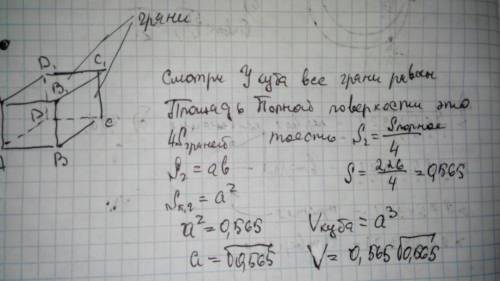 грани
D₁ C₁
B₁
D C
A B
Смотри У куба все грани равны
Площадь Полной поверхности это
4Sграней тоесть S₂ = Sполное/4
S₂ = ab S = 2,26/4 = 0,565
Sк.г = a²
a² = 0,565 Vкуба = a³
a = √0,565 V = 0,565√0,565